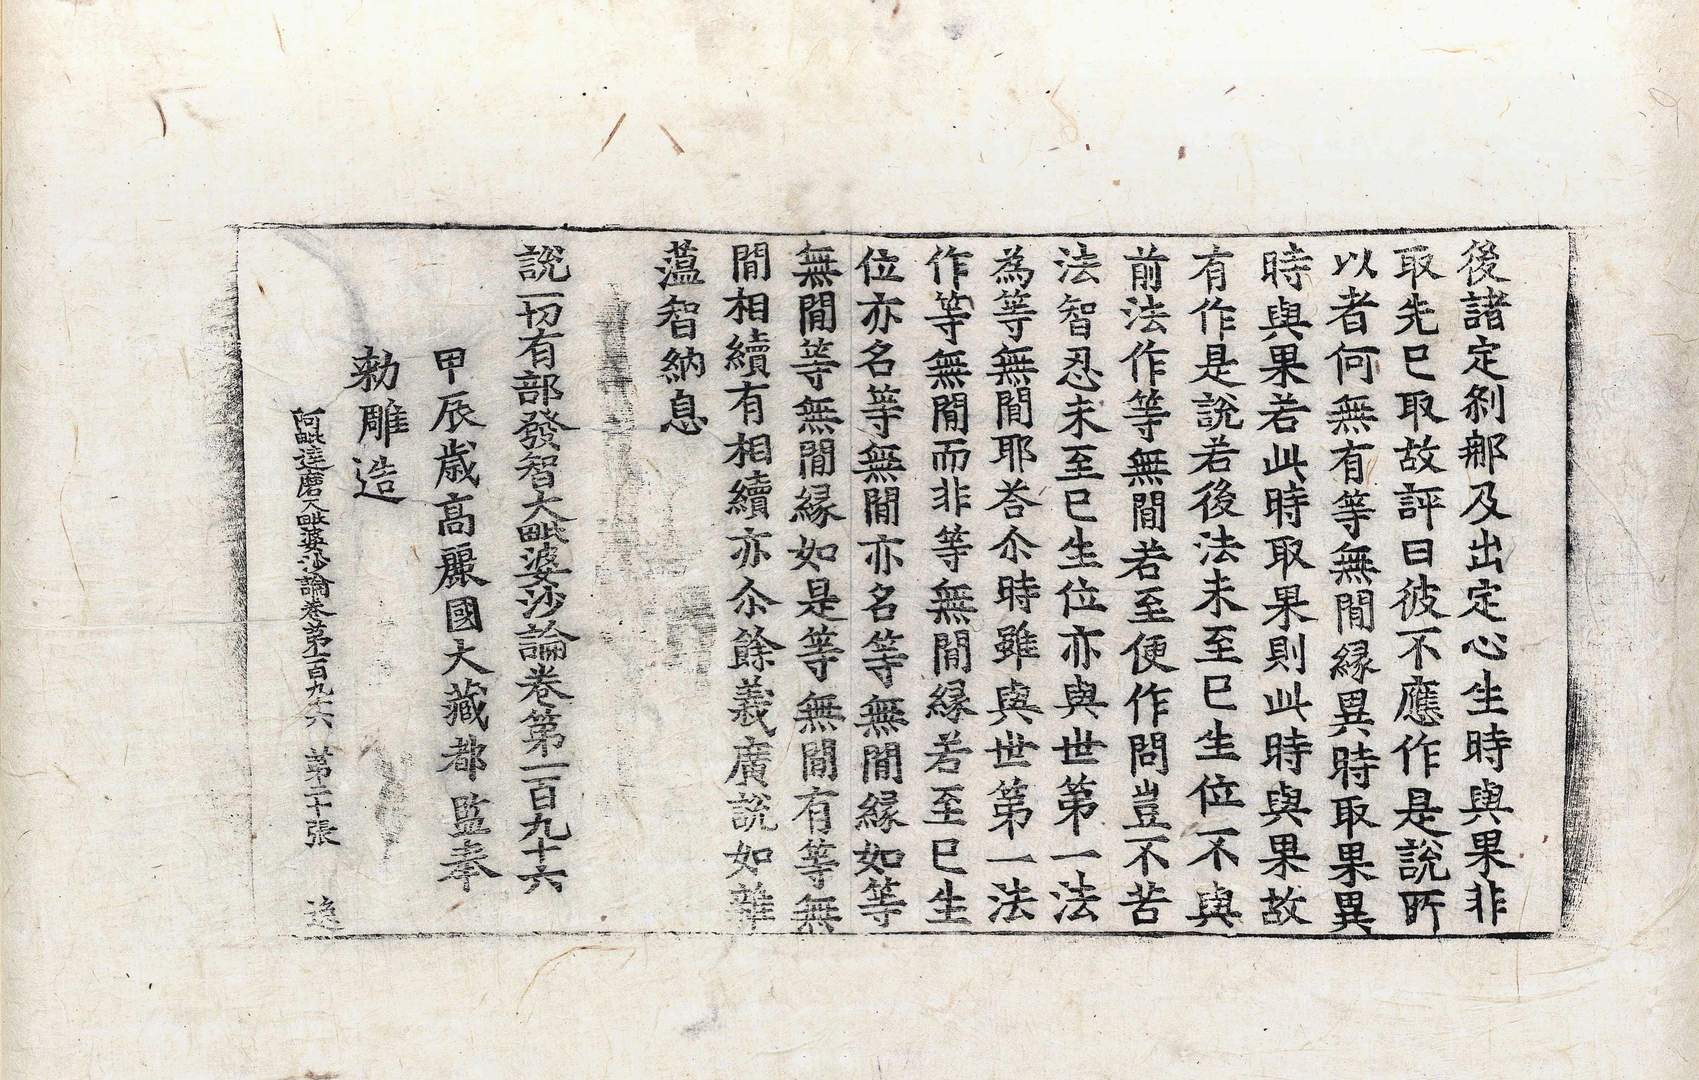 後諸定剎那及出定心生時與果非
取先已取故評曰彼不應作是說所
以者何無有等無間緣異時取果異
時與果若此時取果則此時與果故
有作是說若後法未至已生位不與
前法作等無間若至便作問豈不苦
法智忍未至已生位亦與世第一法
為等無間耶荅尒時雖與世第一法
作等無間而非等無間緣若至已生
位亦名等無間亦名等無間緣如等
無間等無間緣如是等無間有等無
間相續有相續亦尒餘義廣說如雜
薀智納息
說一切有部發智大毗婆沙論卷第一百九十六
甲辰歲高麗國大藏都監奉
勅雕造
阿毗達磨大毗婆沙論卷第一百九十六 第二十張 逸